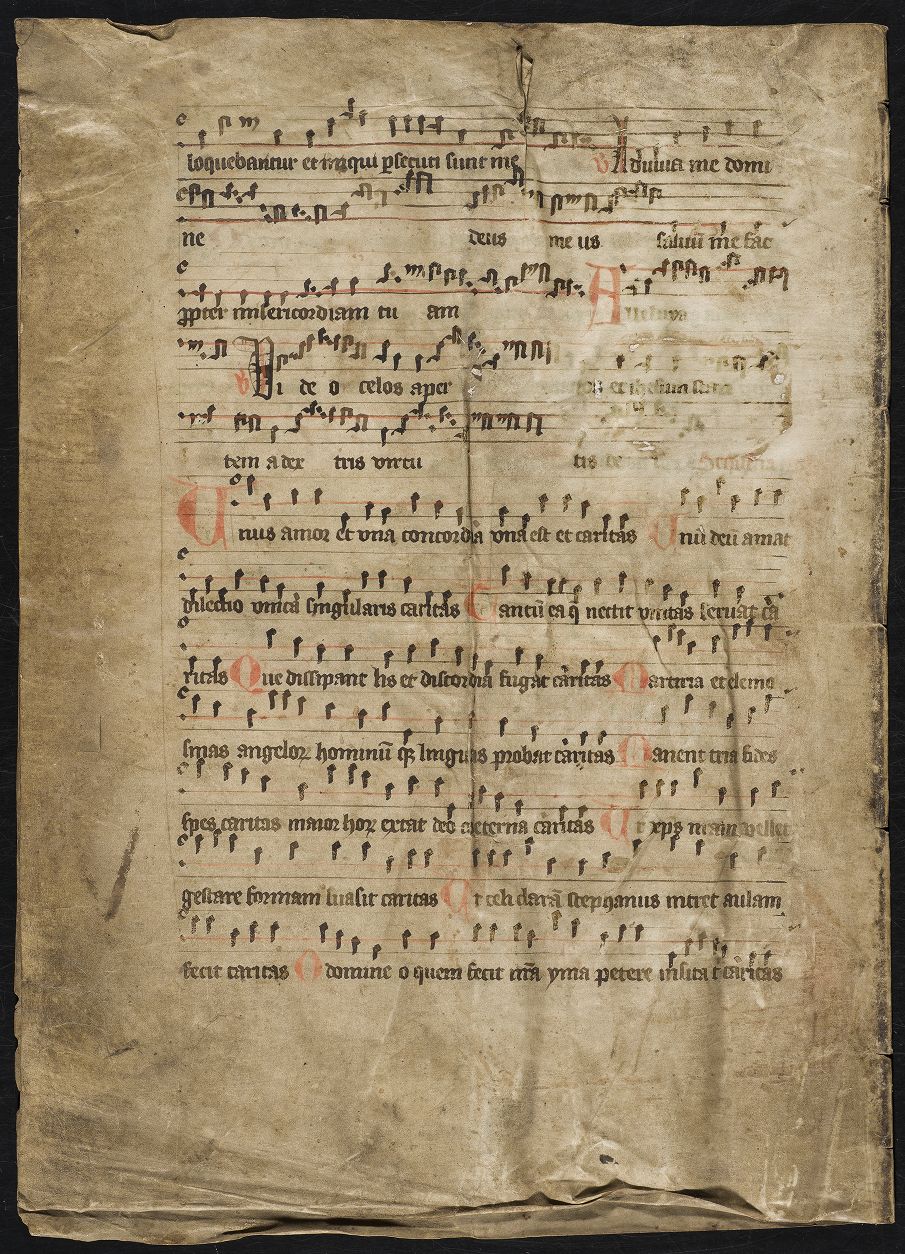 loquebantur et iniqui psecuti sunt me V Adiuua me domi
ne deus me us saluū me fac
ppter misericordiam tu am Alleluya
V Vi de o celos aper et ihesum stan
tem a dex tris virtu tis de
Vnius amor et vna concordia vna est et caritas Vnū deū amat
dilectio vnica singularis caritas Sanctū ea q nectit veritas seruat ca
ritas Que dissipant lis et discordia fugat caritas Martiria et elemo
sinas angeloꝝ hominū qꝫ linguas probat caritas Manent tria fides
spes caritas maior hoꝝ extat deo et eterna caritas Vt xps nram vellet
gestare formam suasit caritas Vt celi clarā stephanus intret aulam
fecit caritas O domine o quem fecit nrā yma petere insita caritas